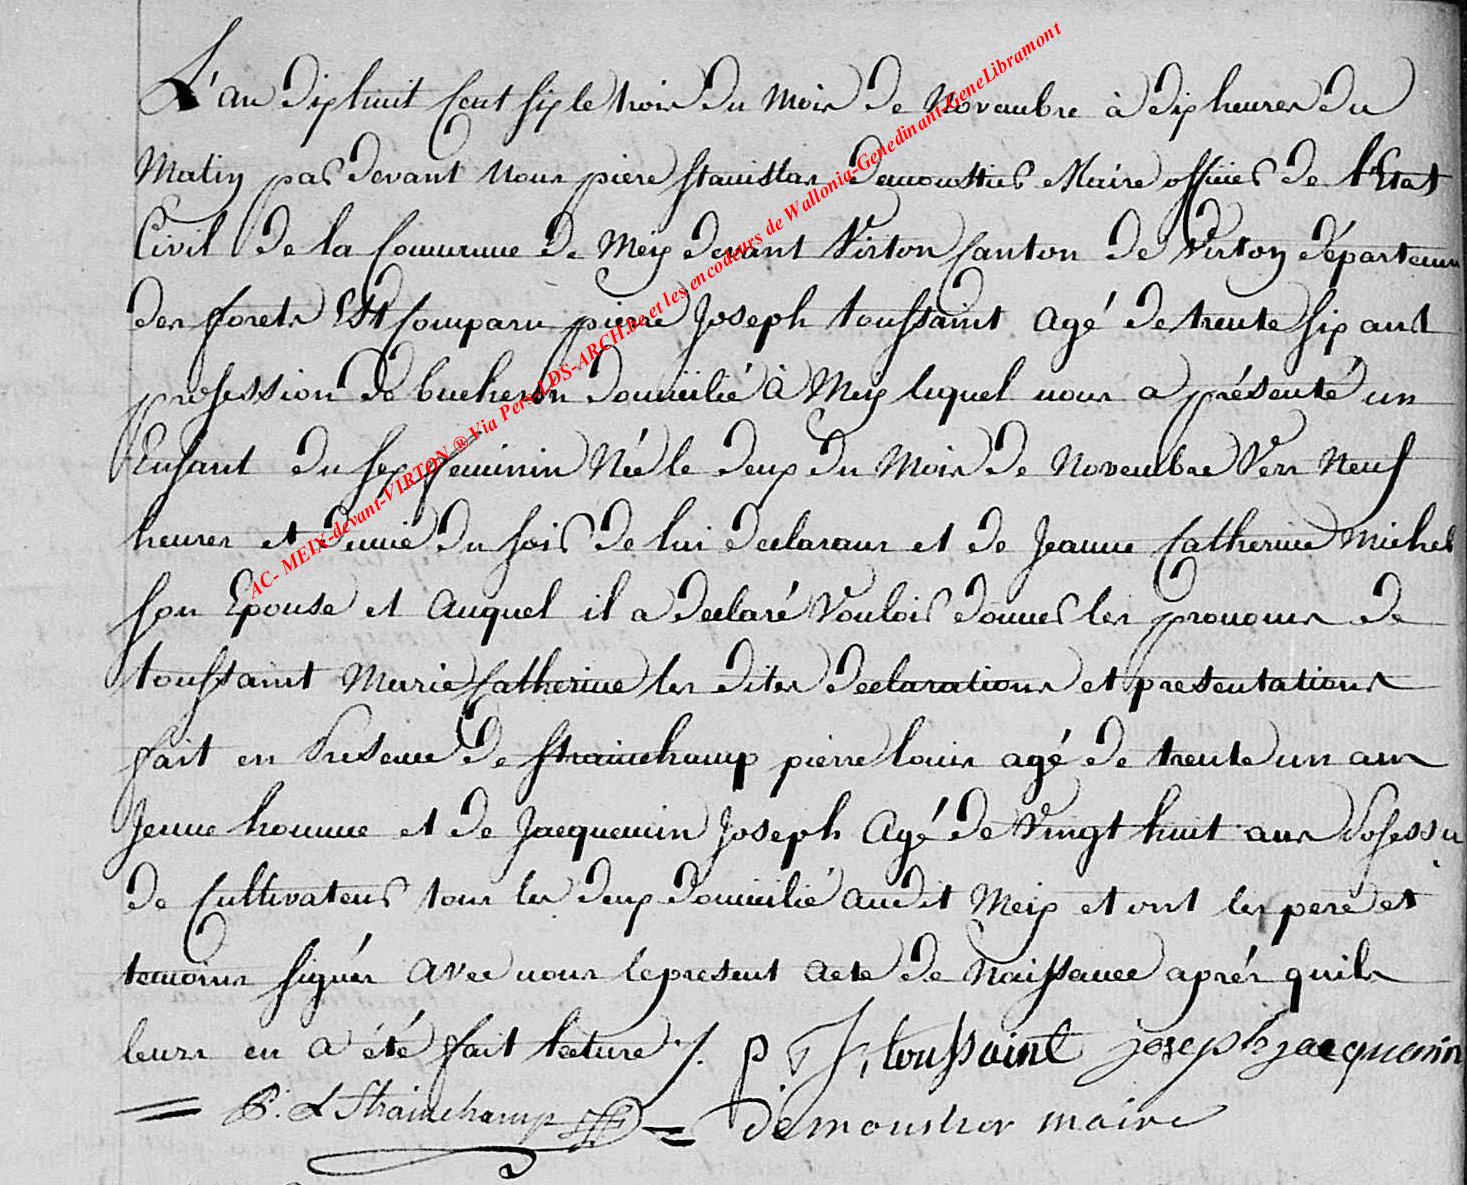 L'an dix huit Cent six le trois du Mois de Novembre à dix heures du
Matin par devant Nous piere stanislas demoustier Maire officier de l'Etat
Civil de la Commune de Meix devant Virton Canton de Virton départemen
des forets Est Comparu pierre Joseph toussaint Agé de trente six ans
profession de bucheron domicilié à Meix lequel nous a présenté un
Enfant du sex feminin Née le deux du Mois de Novembre Vers Neuf
heures et demie du soir de lui declarant et de Jeanne Catherine Michel
son Epouse et Auquel il a declaré Vouloir donner les prenoms de
toussaint Marie Catherine les dites declarations et presentations
fait en Presence de strainchamp pierre louis agé de trente un ans
Jeune homme et de Jacquemin Joseph Agé de Vingt huit ans Profession
de Cultivateur tous les deux domicilié audit Meix et ont les pere et
temoins signés avec nous le present acte de Naissance aprés quils
leurs en a été fait lecture ./.
p J toussaint joseph jacquemin
P. L Strainchamp
demoustier maire
AC- MEIX-devant-VIRTON ® Via Pers LDS-ARCH.be et les encodeurs de Wallonia-Genedinant-GeneLibramont